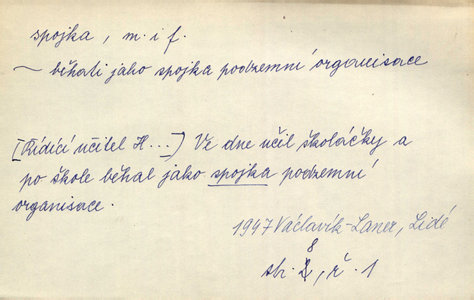 spojka, m. i f.
~ běhati jako spojka podzemní organisace
[Řídící učitel H...] Ve dne učil školáčky a
po škole běhal jako spojka podzemní
organisace.
1947 Václavík-Laner, Lidé
8
str. , ř. 1